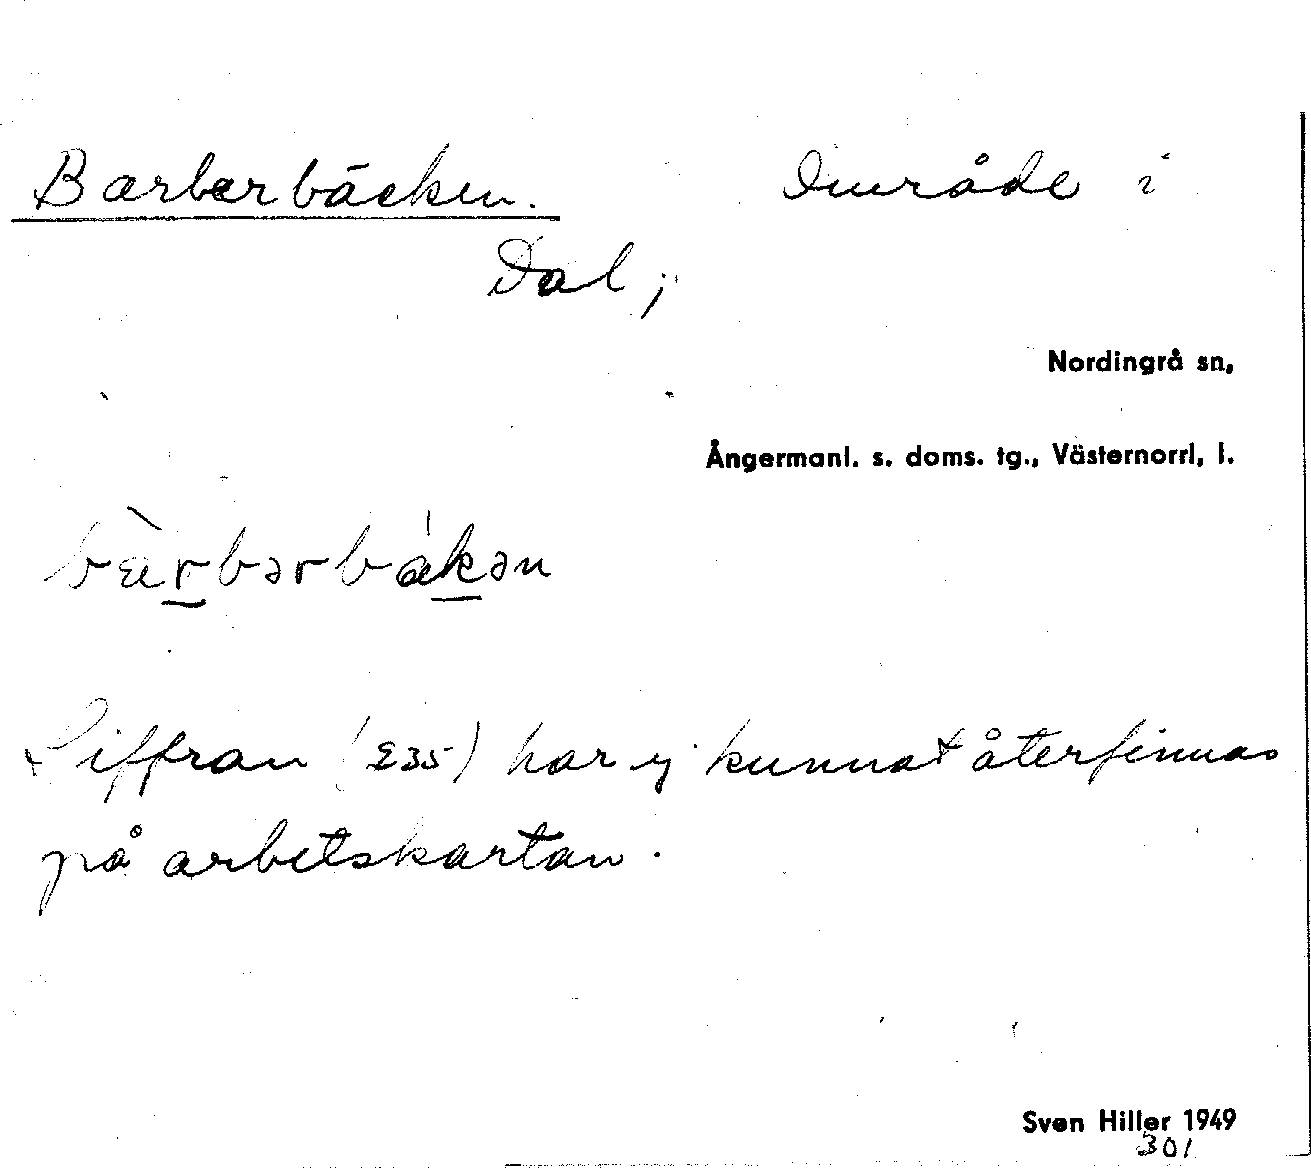 Barberbäcken. Område i
Dal;
Nordingrå sn,
Ångermanl. s. doms. tg., Västernorrl, l.
Siffran (235) har ej kunnat återfinnas
på arbetskartan.
Sven Hiller 1949
301